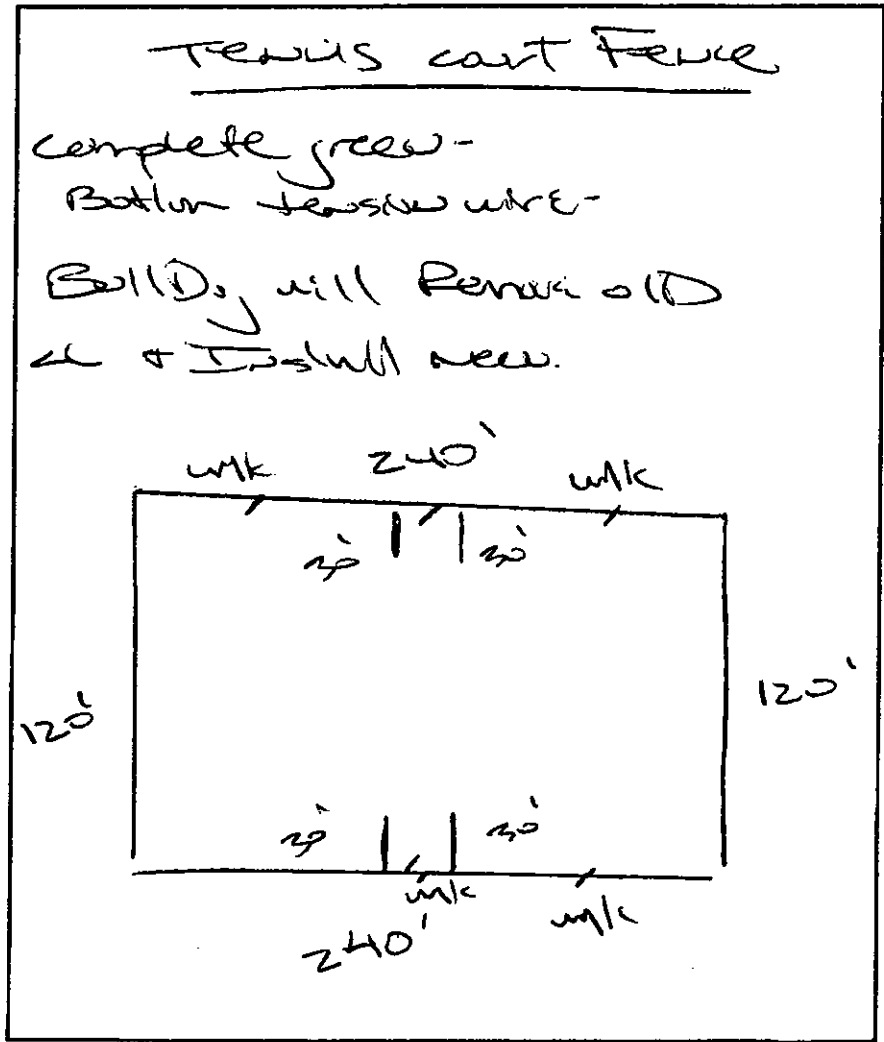 Tennis court Fence
complete green-
Bottom tension wire-
BullDog will Remove olD
& Install new.
240'
w/k w/k
30' 30'
120' 120'
30' 30'
w/k w/k
240'